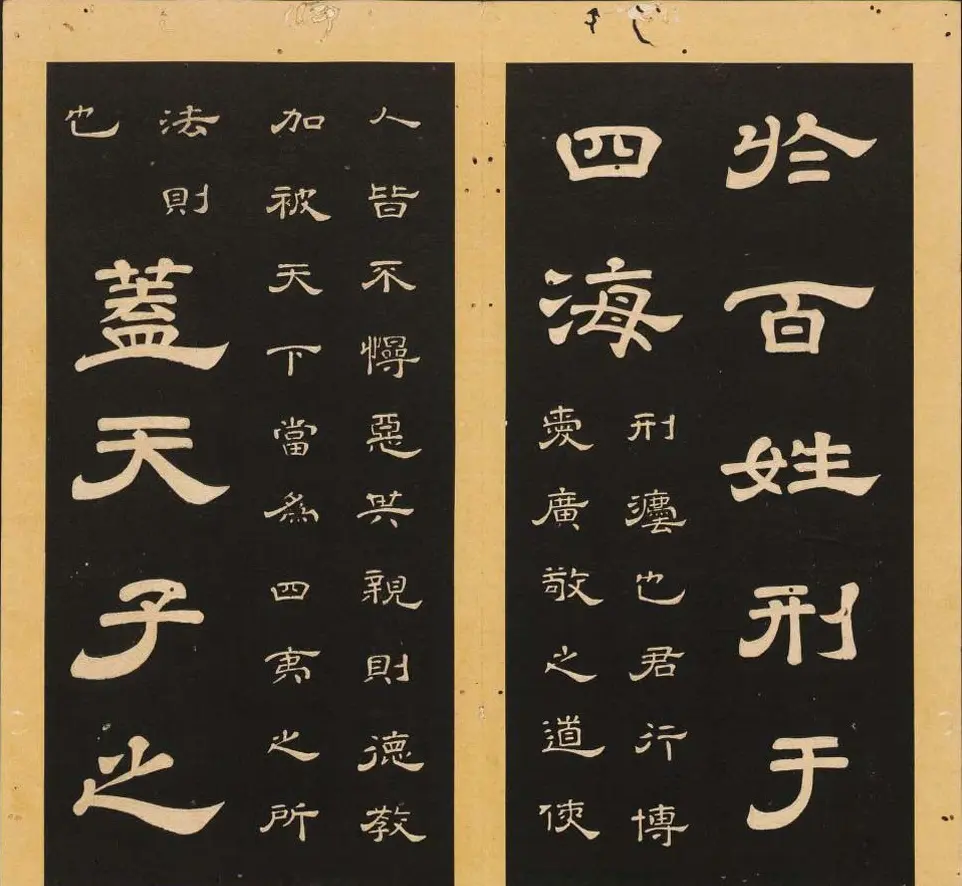 於百姓刑于
四海
刑灋也君行博
愛廣敬之道使
人皆不慢惡其親則德教
加被天下當為四夷之所
法則
也
蓋天子之